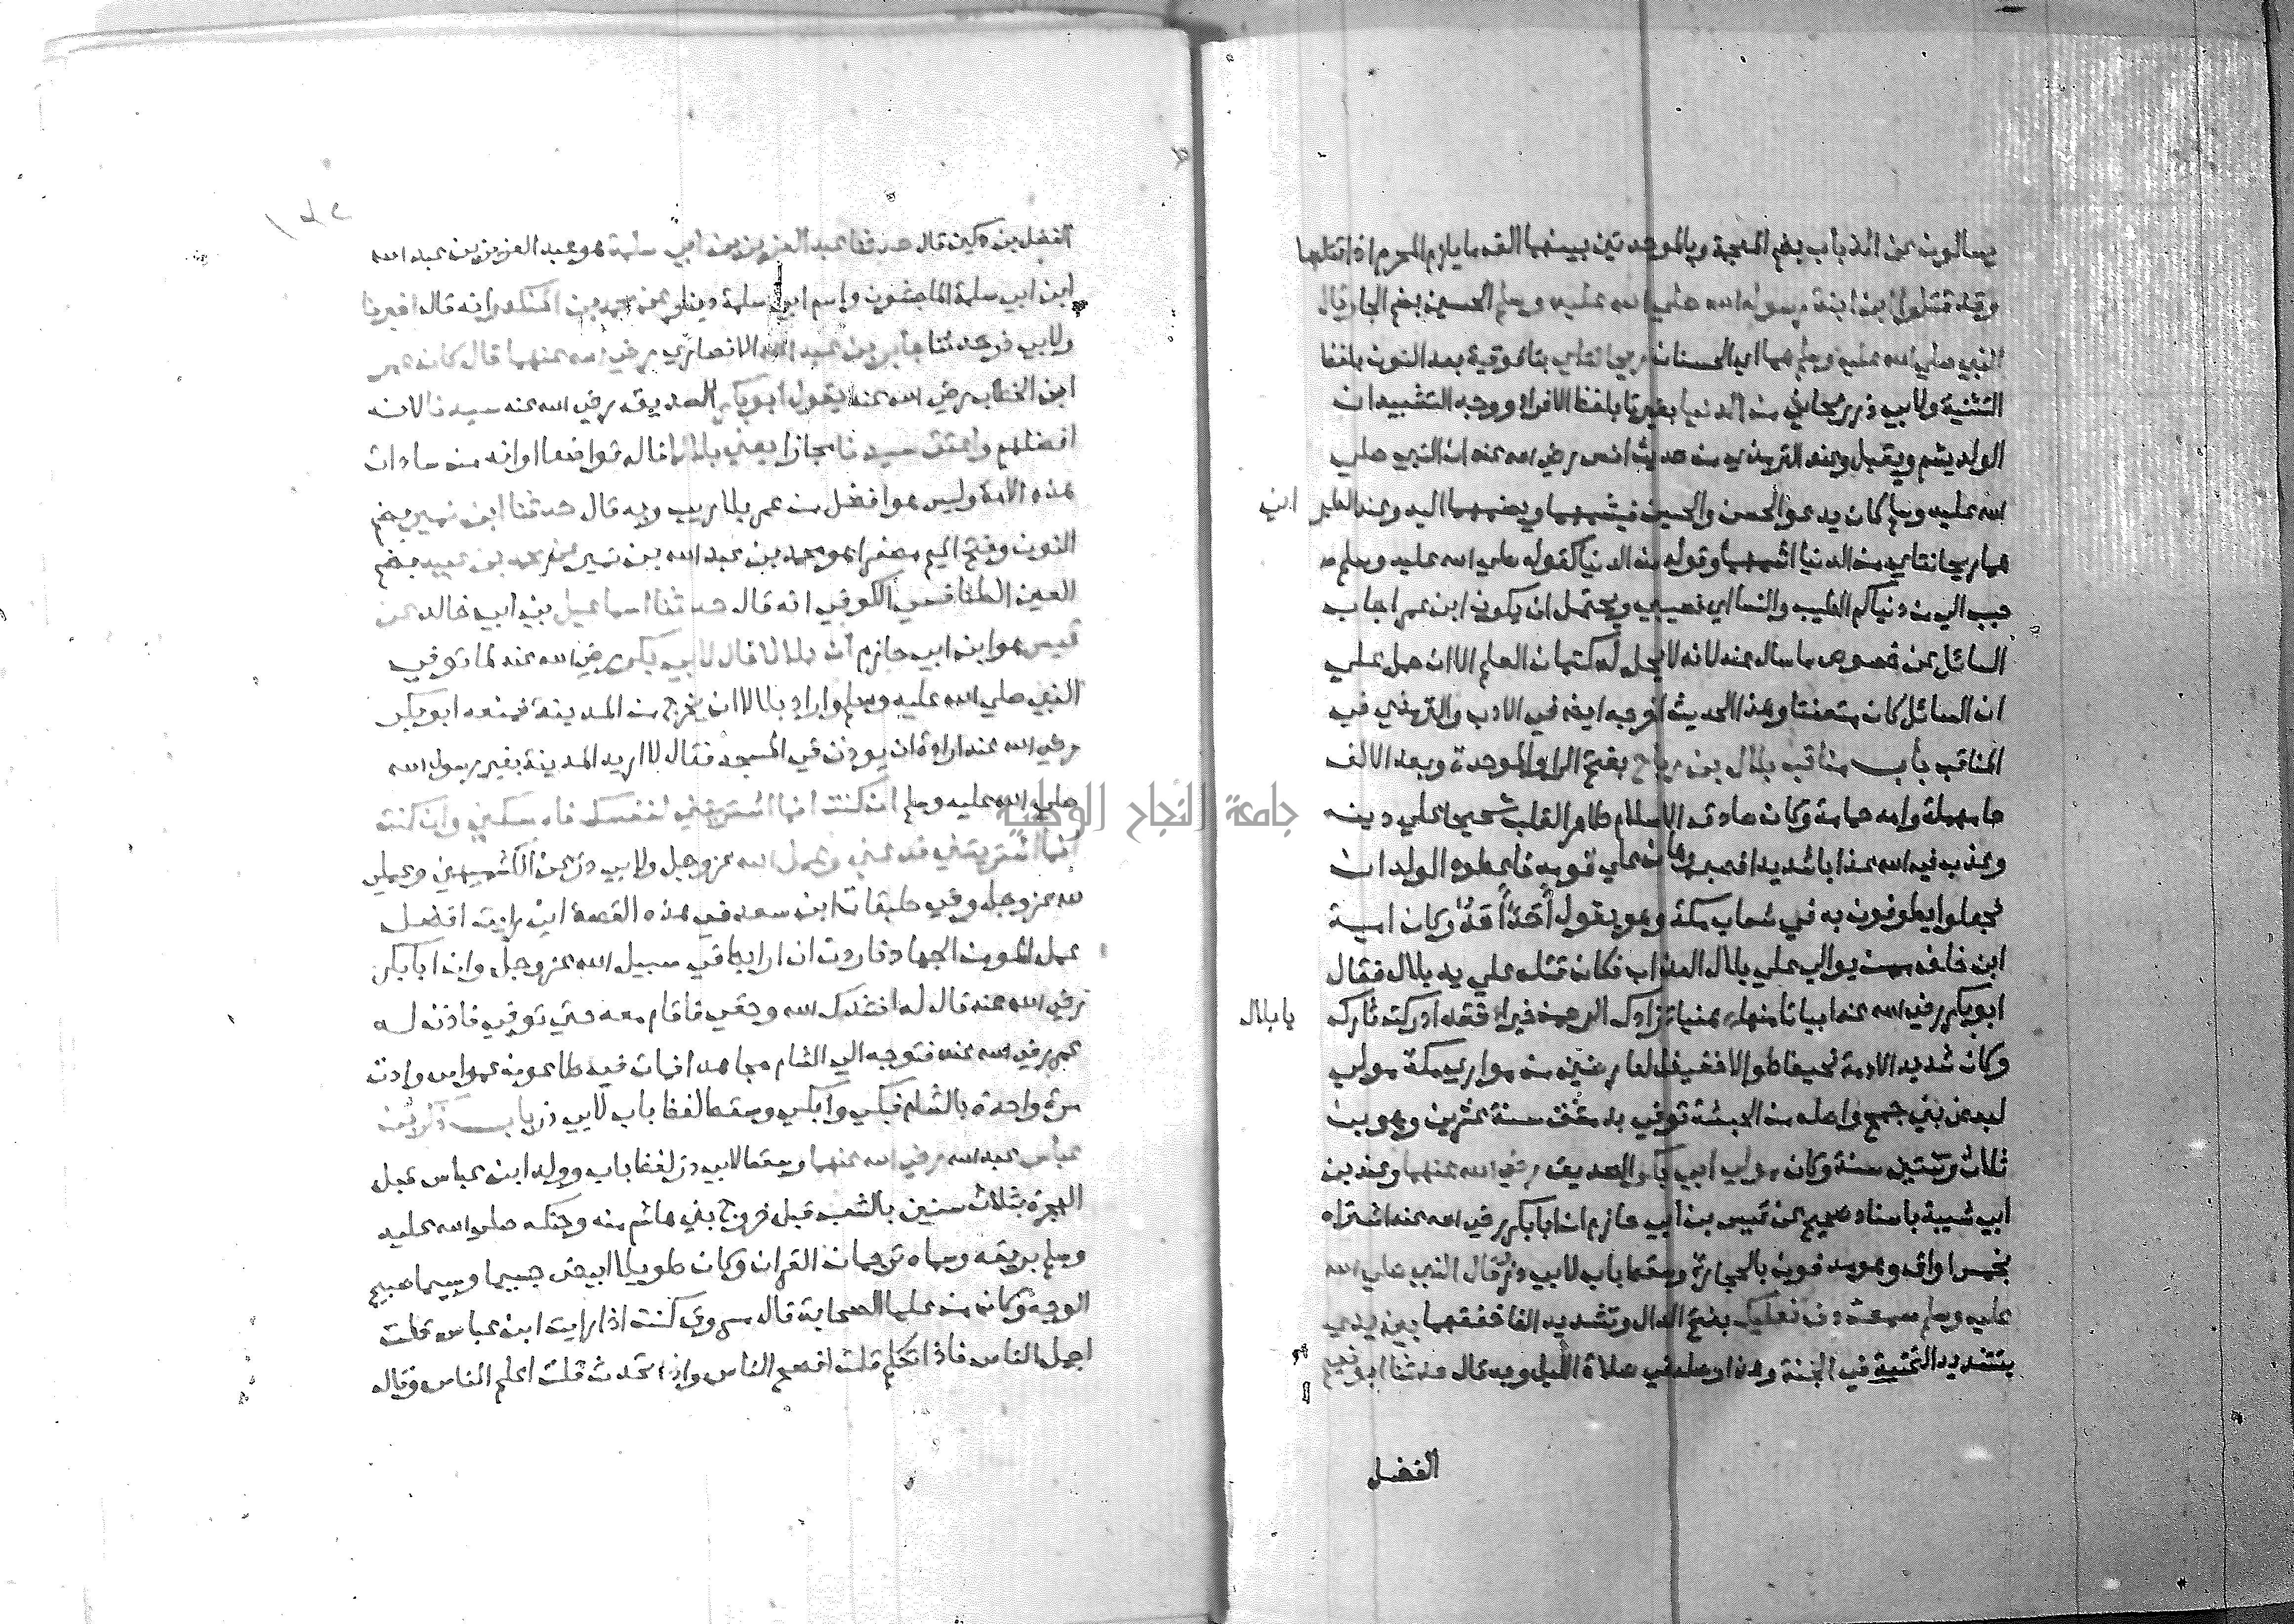 يسالون عن الذباب بضم المعجمة وبالموحدتين بينهما الف ما يلزم المحرم اذا قتلها
وقد قتلوا ابن ابنة رسول الله صلي الله عليه وسلم الحسين بضم الحا وقال
النبي صلي الله عليه وسلم هما اي الحسنان ريحانتاي بتا فوقية بعد النون بلفظ
التثنية ولابي ذر ريحاني من الدنيا بغير تا بلفظ الافراد ووجه التشبيه ان
الولد يشم ويقبل وعند الترمذي من حديث انس رضي الله عنه ان النبي صلي
الله عليه وسلم كان يدعو الحسن والحسين فيشمهما ويضمهما اليه وعند الطبراني
هما ريحانتاي من الدنيا اشمهما وقوله من الدنيا كقوله صلي الله عليه وسلم
حبب الي من دنياكم الطيب والنسا اي نصيبي ويحتمل ان يكون ابن عمر اجاب
السائل عن خصوص ما سال عنه لانه لا يحل له كتمان العلم الا ان حمل علي
ان السائل كان متعنتا وهذا الحديث اخرجه ايضا في الادب والترمذي في
المناقب باب مناقب بلال بن رباح بفتح الرا والموحدة وبعد الالف
حا مهملة وامه حمامة وكان صادق الاسلام طاهر القلب شحيحا علي دينه
وعذب في الله عذابا شديدا فصبر وهان علي قومه فاعطوه الولدان
فجعلوا يطوفون به في شعاب مكة وهو يقول أحدٌ أحدٌ وكان امية
ابن خلف ممن يوالي علي بلال العذاب فكان قتله علي يد بلال فقال
ابو بكر رضي الله عنه ابياتا منها هنيا زادك الرحمن خيرا فقد ادركت ثارك يا بلال
وكان شديد الادمة نحيفا طوالا خفيف العارضين من مولدي مكة مولي
لبعض بني جمح واصله من الحبشة توفي بدمشق سنة عشرين وهو ابن
ثلاث وستين سنة وكان مولي ابي بكر الصديق رضي الله عنهما وعند بن
ابي شيبة باسناد صحيح عن قيس بن ابي حازم ان ابا بكر رضي الله عنه اشتراه
بخمس اواق وهو مدفون بالحجارة وسقط باب لابي ذر وقال النبي صلي الله
عليه وسلم سمعت دف نعليك بفتح الدال وتشديد الفا خفقهما بين يدي
بتشديد التحتية في الجنة وهذا وصله في صلاة الليل وبه قال حدثنا ابو نعيم
الفضل
الفضل بن دكين قال حدثنا عبد العزيز بن ابي سلمة هو عبد العزيز بن عبد الله
ابن ابي سلمة الماجشون واسم ابي سلمة دينار عن محمد بن المنكدر انه قال اخبرنا
ولابي ذر حدثنا جابر بن عبد الله الانصاري رضي الله عنهما قال كان عمر
ابن الخطاب رضي الله عنه يقول ابو بكر الصديق رضي الله عنه سيدنا لانه
افضلهم واعتق سيدنا مجازا يعني بلالا قاله تواضعا او انه من سادات
هذه الامة وليس هو افضل من عمر بلا ريب وبه قال حدثنا ابن نمير بضم
النون وفتح الميم مصغرا هو محمد بن عبد الله بن نمير عن محمد بن عبيد بضم
العين الطنافسي الكوفي انه قال حدثنا اسماعيل بن ابي خالد عن
قيس هو ابن ابي حازم ان بلالا قال لابي بكر رضي الله عنه لما توفي
النبي صلي الله عليه وسلم واراد بلال ان يخرج من المدينة فمنعه ابو بكر
رضي الله عنه ارادة ان يوذن في المسجد فقال لا اريد المدينة بغير رسول الله
صلي الله عليه وسلم ان كنت انما اشتريتني لنفسك فامسكني وان كنت
انما اشتريتني لله فدعني وعمل الله عز وجل ولابي ذر عن الكشميهني وعملي
لله عز وجل وفي طبقات ابن سعد في هذه القصة اني رايت افضل
عمل المومن الجهاد فاردت ان ارابط في سبيل الله عز وجل وان ابا بكر
رضي الله عنه قال له انشدك الله وحقي فاقام معه حتي توفي فاذن له
عمر رضي الله عنه فتوجه الي الشام مجاهدا فمات فيه طاعون عمواس واذن
مرة واحدة بالشام فبكي وابكي وسقط لفظ باب لابي ذر باب ذكر بن
عباس عبد الله رضي الله عنهما وسقط لابي ذر لفظ باب وولد ابن عباس قبل
الهجرة بثلاث سنين بالشعب قبل خروج بني هاشم منه وحنكه صلي الله عليه
وسلم بريقه وسماه ترجمان القران وكان طويلا ابيض جسيما وسيما صبيح
الوجه وكان من علما الصحابة قال مسروق كنت اذا رايت ابن عباس قلت
اجمل الناس فاذا تكلم قلت افصح الناس واذا تحدث قلت اعلم الناس وقال
جامعة النجاح الوطنية